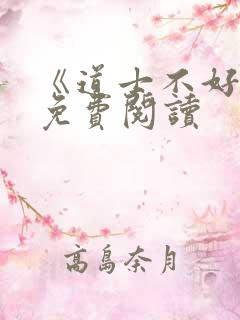 《道士不好
免費閱讀
高島奈月